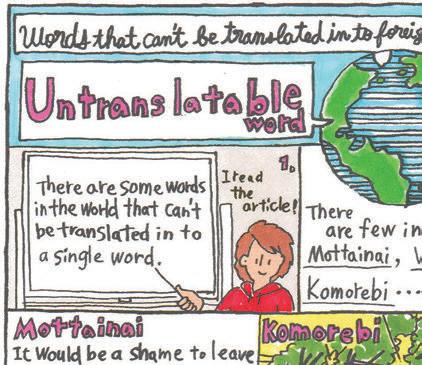 Words that can't be translated in to
Untranslatable
word
There are some words
in the world that can't
be translated in to
a single word.
1.
I read
the
article!
There
are few in
Mottainai,
Komorebi ...
Mottainai
It would be a shame to leave
Komorebi